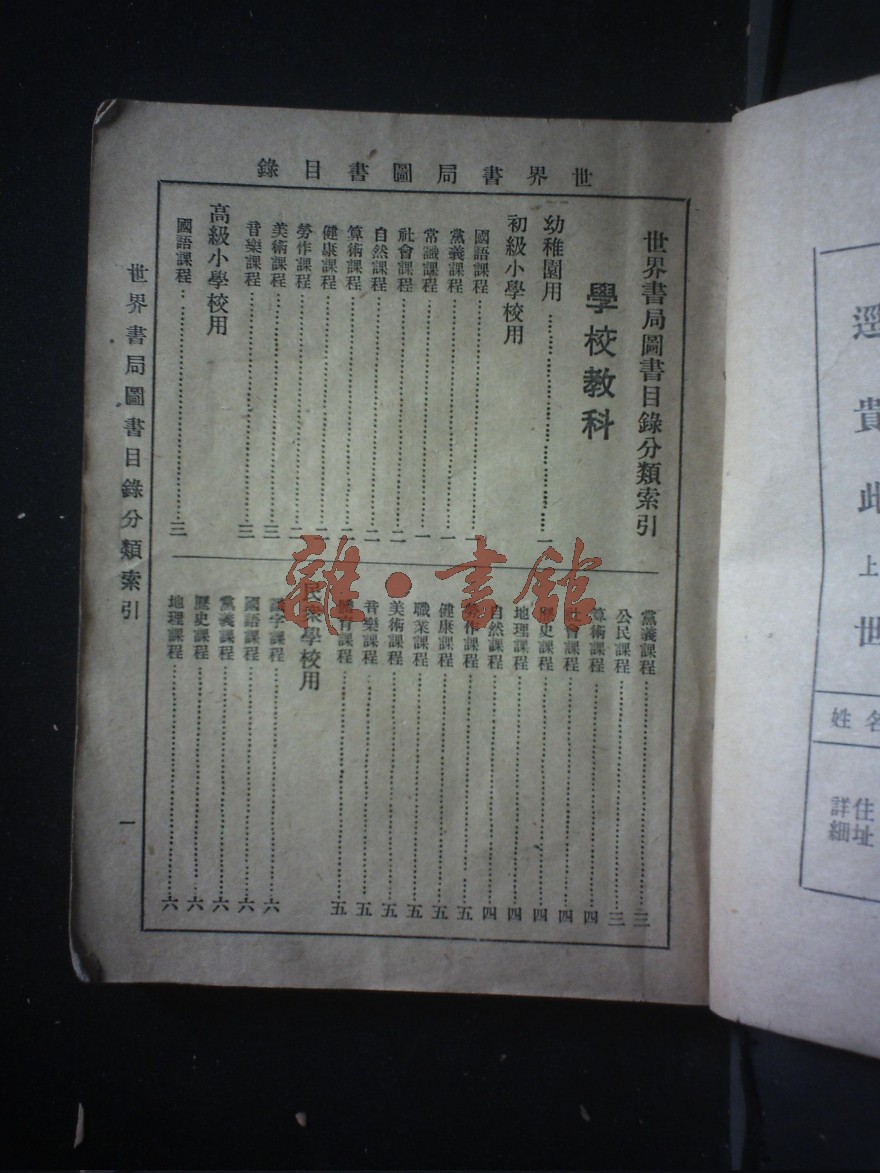 世界書局圖書目錄
世界書局圖書目錄分類索引
學校教科
幼稚園用…………一
初級小學校用
國語課程…………一
黨義課程…………一
常識課程…………一
社會課程…………二
自然課程…………二
算術課程…………二
健康課程…………二
勞作課程…………二
美術課程…………三
音樂課程…………三
高級小學校用
國語課程…………三
黨義課程…………三
公民課程…………三
算術課程…………四
社會課程…………四
歷史課程…………四
地理課程…………四
自然課程…………四
勞作課程…………五
健康課程…………五
職業課程…………五
美術課程…………五
音樂課程…………五
體育課程…………五
民衆學校用
識字課程…………六
國語課程…………六
黨義課程…………六
歷史課程…………六
地理課程…………六
世界書局圖書目錄分類索引
一
雜·書館
貴此
上
世
姓名
住址
詳細